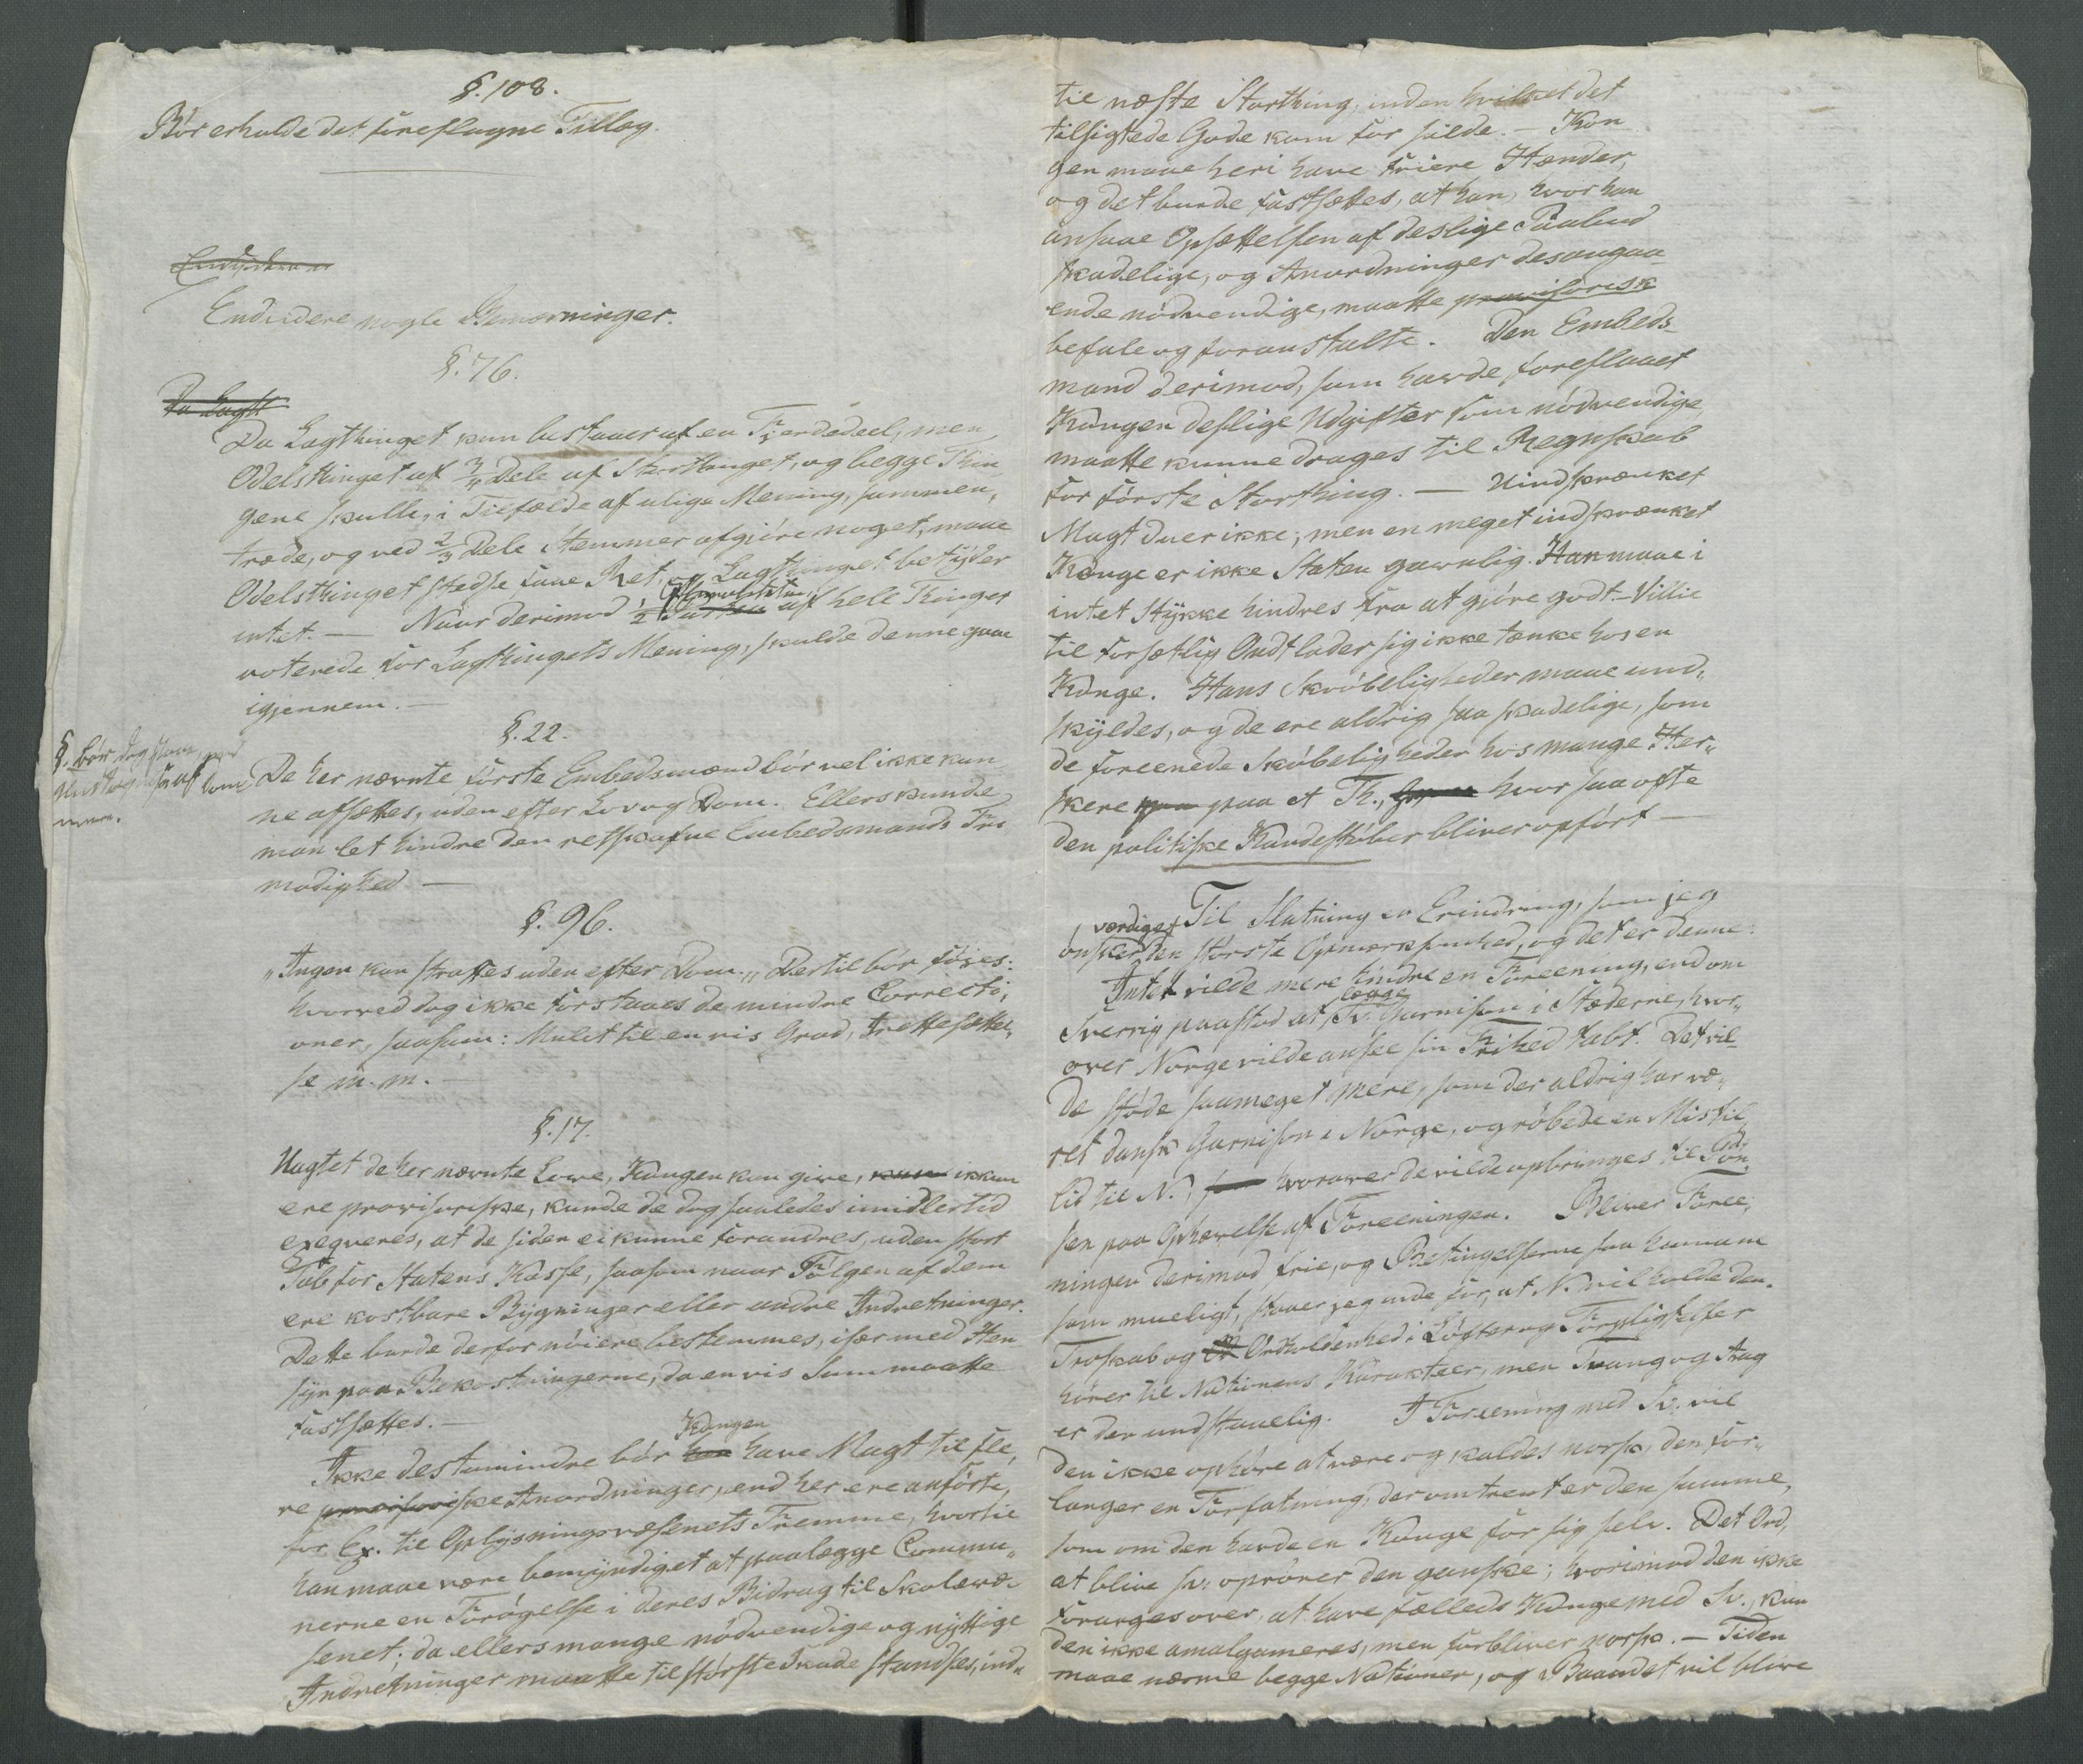 §. 108.
Bör erholde det foreslagne Tillæg.
Endvidere nogle Bemærninger.
§. 76.
Da Lagt
Da Lagthinget kun bestaaer af en Fjerdedeel, men
Odelsthinget af 3/4 Dele af Storthinget, og begge Thin
gene skulle, i Tilfælde af ulige Mening, sammen,
træde, og ved 2/3 Dele Stemmer afgjöre noget, maae
Odelsthinget stedse faae Ret, og Lagthinget betÿder
intet. — Naar derimod 1/2 af hele Thinget
voterede for Lagthingets Mening, skulde denne gaae
igjennem. —
§. 22.
§. bör dog staae, med
Undtagelse af
De her nævnte förste Embedsmænd bör vel ikke kun
ne afsættes, uden efter Lov og Dom. Ellers kunde
man let hindre den retskafne Embedsmands Fri
modighed —
§. 96.
„Ingen kan straffes uden efter Dom„ Dertil bör föies:
hvorved dog ikke forstaaes de mindre Correcti,
oner, saasom: Mulct til en vis Grad, Irettesættel,
se m. m. —
§. 17.
Uagtet de her nævnte Love, Kongen kan give, kun ikkun
ere provisoriske, kunde de dog saaledes imidlertid
exeqveres, at de siden ei kunne forandres, uden stort
Tab for Statens Kasse, saasom naar Fölgen af dem
ere kostbare Bÿgninger eller andre Indretninger.
Dette burde derfor nöiere bestemmes, især med Hen
sÿn paa Bekostningerne, da en vis Sum maatte
fastsættes. —
Kongen
Ikke destomindre bör han have Magt til fle,
re provisoriske Anordninger, end her ere anförte,
for Ex. til Oplÿsningsvæsenets Fremme, hvortil
han maae være bemÿndiget at paalægge Commu„
nerne en Forögelse i deres Bidrag til Skolevæ-
senet; da ellers mange nödvendige og nÿttige
Indretninger maatte til störste Skade standses, ind„
til næste Storthing, inden hvilket det
tilsigtede Gode kom for silde. — Kon
gen maae heri have friere Hænder,
og det burde fastsættes, at han, hvor han
ansaae Opsættelsen af deslige Paabud
skadelige, og Anordninger desangaa
ende nödvendige, maatte provisorisk
befale og foranstalte. Den Embeds
mand derimod, som havde foreslaaet
Kongen deslige Udgifter som nödvendige,
maatte kunne drages til Regnskab
for förste Storthing. — Uindskrænket
Magt duer ikke; men en meget indskrænket
Konge er ikke Staten gavnlig. Han maae i
intet Stÿkke hindres fra at gjöre godt. — Villie
til forsætlig Ondt lader sig ikke tænke hos en
Konge. Hans Skröbeligheder maae und,
skÿldes, og de ere aldrig saa skadelige, som
de foreenede Sköbeligheder hos mange Her„
skere paa paa et Th., hvor saa ofte
den politiske Kandestöber bliver opfört —
Til Slutning en Erindring, som jeg
værdiget
önsker den störste Opmærksomhed, og det er denne:
Intet vilde mere hindre en Foreening, end om
lægge
Sverrig paastod at Sv. Garnison i Stæderne, hvor„
over Norge vilde ansee sin Frihed tabt. Det vil
de stöde saameget mere, som der aldrig har væ„
ret dansk Garnison i Norge, og röbede en Mistil
lid til N., hvorover de vilde opbringes til
sen paa Ophævelse af Foreeningen. Bliver Foree,
ningen derimod frie, og Betingelserne saa
som mueligt, staaer jeg inde for, at N. vil holde den.
Troskab og Ordholdenhed i Löfter og Forpligtelser
hörer til Nationens Karakteer, men Tvang og Aag
er den uudstaaelig. I Foreening med Sv. vil
den ikke ophöre at være og kaldes norsk, den for„
langer en Forfatning, der omtrent er den samme,
som om den havde en Konge for sig selv. Det Ord,
at blive sv. oprörer den ganske; hvorimod den ikke
forarges over, at have fælleds Konge med Sv., kun
den ikke amalgameres, men forbliver norsk. — Tiden
maae nærme begge Nationer, og Baandet vil blive